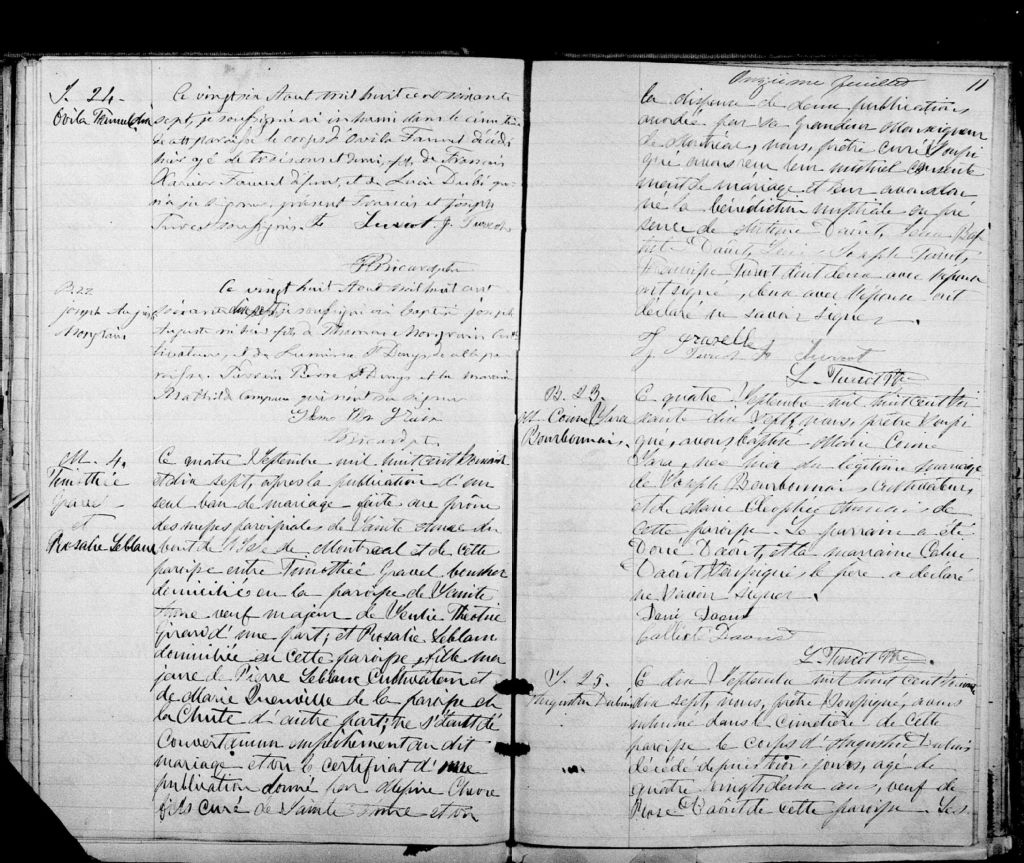 S. 24.
Ovila
Ce vingt six Aout mil huit cent soixante
sept, je soussigné ai inhumé dans le cimetière
de cette paroisse le corps d'Ovila décédé
hier agé de trois ans et demi, fils de François
Xavier et de Dubé qui
n'a pu signer, présent François et Joseph
Turcot soussignés. Turcot J. Turcot
Ricard ptre
B. 22
Joseph Auguste
Mongrain
Ce vingt huit Aout mil huit cent
soixante dix sept je soussigné ai baptisé Joseph
Auguste né fils de Thomas Mongrain Cul
tivateur, et de St Denys de cette pa
roisse. Parrain Pierre St Denys et la marraine
Mathilde qui n'ont su signer
Ricard ptr
M. 4.
Timothée
Gravel
et
Rosalie Leblanc
Ce quatre Septembre mil huit cent soixante
et dix sept, après la publication d'un
seul ban de mariage faite au prône
des messes paroissiales de Sainte Anne du
bout de l'Isle de Montreal et de cette
paroisse entre Timothée Gravel boucher
domicilié en la paroisse de Sainte
Anne veuf majeur de
Girard d'une part; et Rosalie Leblanc
domiciliée en cette paroisse, fille ma
jeure de Pierre Leblanc Cultivateur et
de Marie Quenville de la paroisse de
la Chute d'autre part; ne s'étant dé
couvert aucun empêchement au dit
mariage et vu le certificat d'une
publication donné par Messire Chevre
fils curé de Sainte Anne et vu
Onzième feuillet 11
la dispense de deux publications
accordée par sa grandeur Monseigneur
de Montréal, nous, prêtre curé soussi
gné avons reçu leur mutuel consente
ment de mariage et leur avons don
né la bénédiction nuptiale en pré
sence de Antoine Daoût, Jean Bap
tiste Daoût, Joseph Turcot,
François Turcot dont deux avec l'époux
ont signé, deux avec l'épouse ont
déclaré ne savoir signer.
T. gravelle
J. Turcot Turcot
L. Turcot Ptre
B. 23.
M. Corine Sara
Bourbonnais.
Ce quatre Septembre mil huit cent soi
xante dix sept, nous, prêtre soussi
gné, avons baptisé Marie Corine
Sara, née hier du légitime mariage
de Joseph Bourbonnais, cultivateur,
et de Marie Cléophée de
cette paroisse. Le parrain a été
Doné Daoût, et la marraine
Daoût soussignés, le père a déclaré
ne savoir signer.
Doné Daout
Daoust
L. Turcot Ptre.
S. 25.
Augustin Dubois
Ce dix Septembre mil huit cent soixante
dix sept, nous, prêtre soussigné, avons
inhumé dans le cimetière de cette
paroisse le corps d'Augustin Dubois
décédé depuis trois jours, agé de
quatre vingts deux ans, veuf de
Rose Daoût de cette paroisse. Les